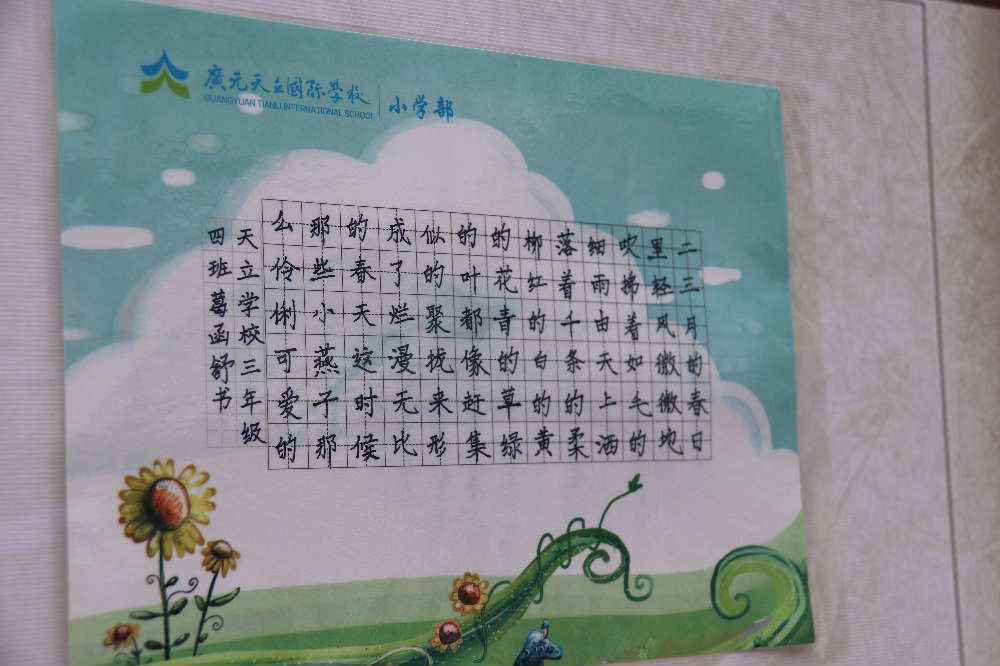 廣元天立國际學校
GUANGYUAN TIANLI INTERNATIONAL SCHOOL
小学部
二三月的春日
里轻风微微地
吹拂着如毛的
细雨由天上洒
落着千条的柔
柳红的白的黄
的花青的草绿
的叶都像赶集
似的聚拢来形
成了烂漫无比
的春天这时候
那些小燕子那
么伶俐可爱的
天立学校三年级
四班葛函舒书